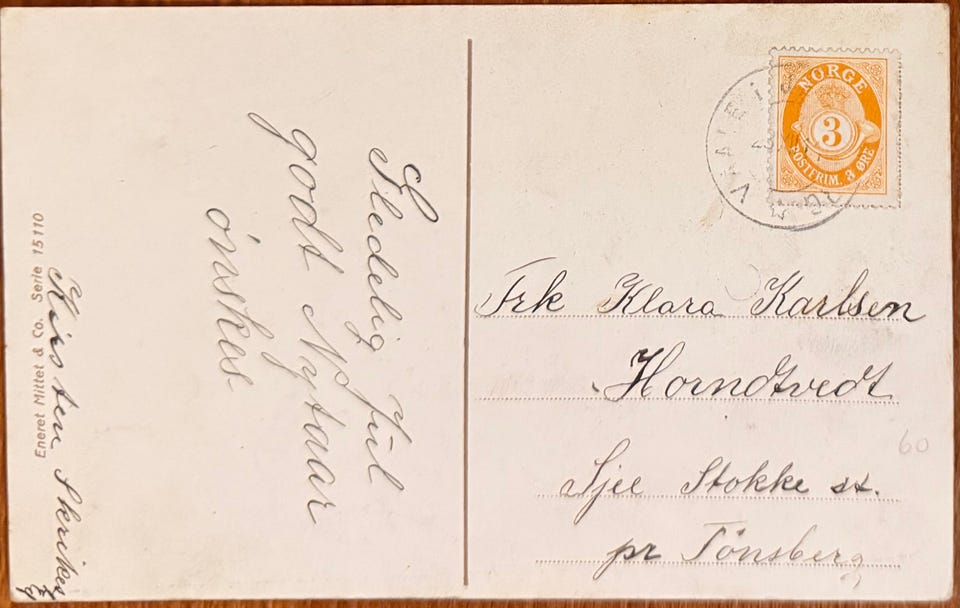 Glædelig Jul
godt Nytaar
ønskes
Kirsten
Eneret Mittet & Co. Serie 15110
NORGE
3
POSTFRIM. 3 ØRE
Frk Klara Karlsen
Horndtvedt
Sjee Stokke st.
pr Tönsberg
60